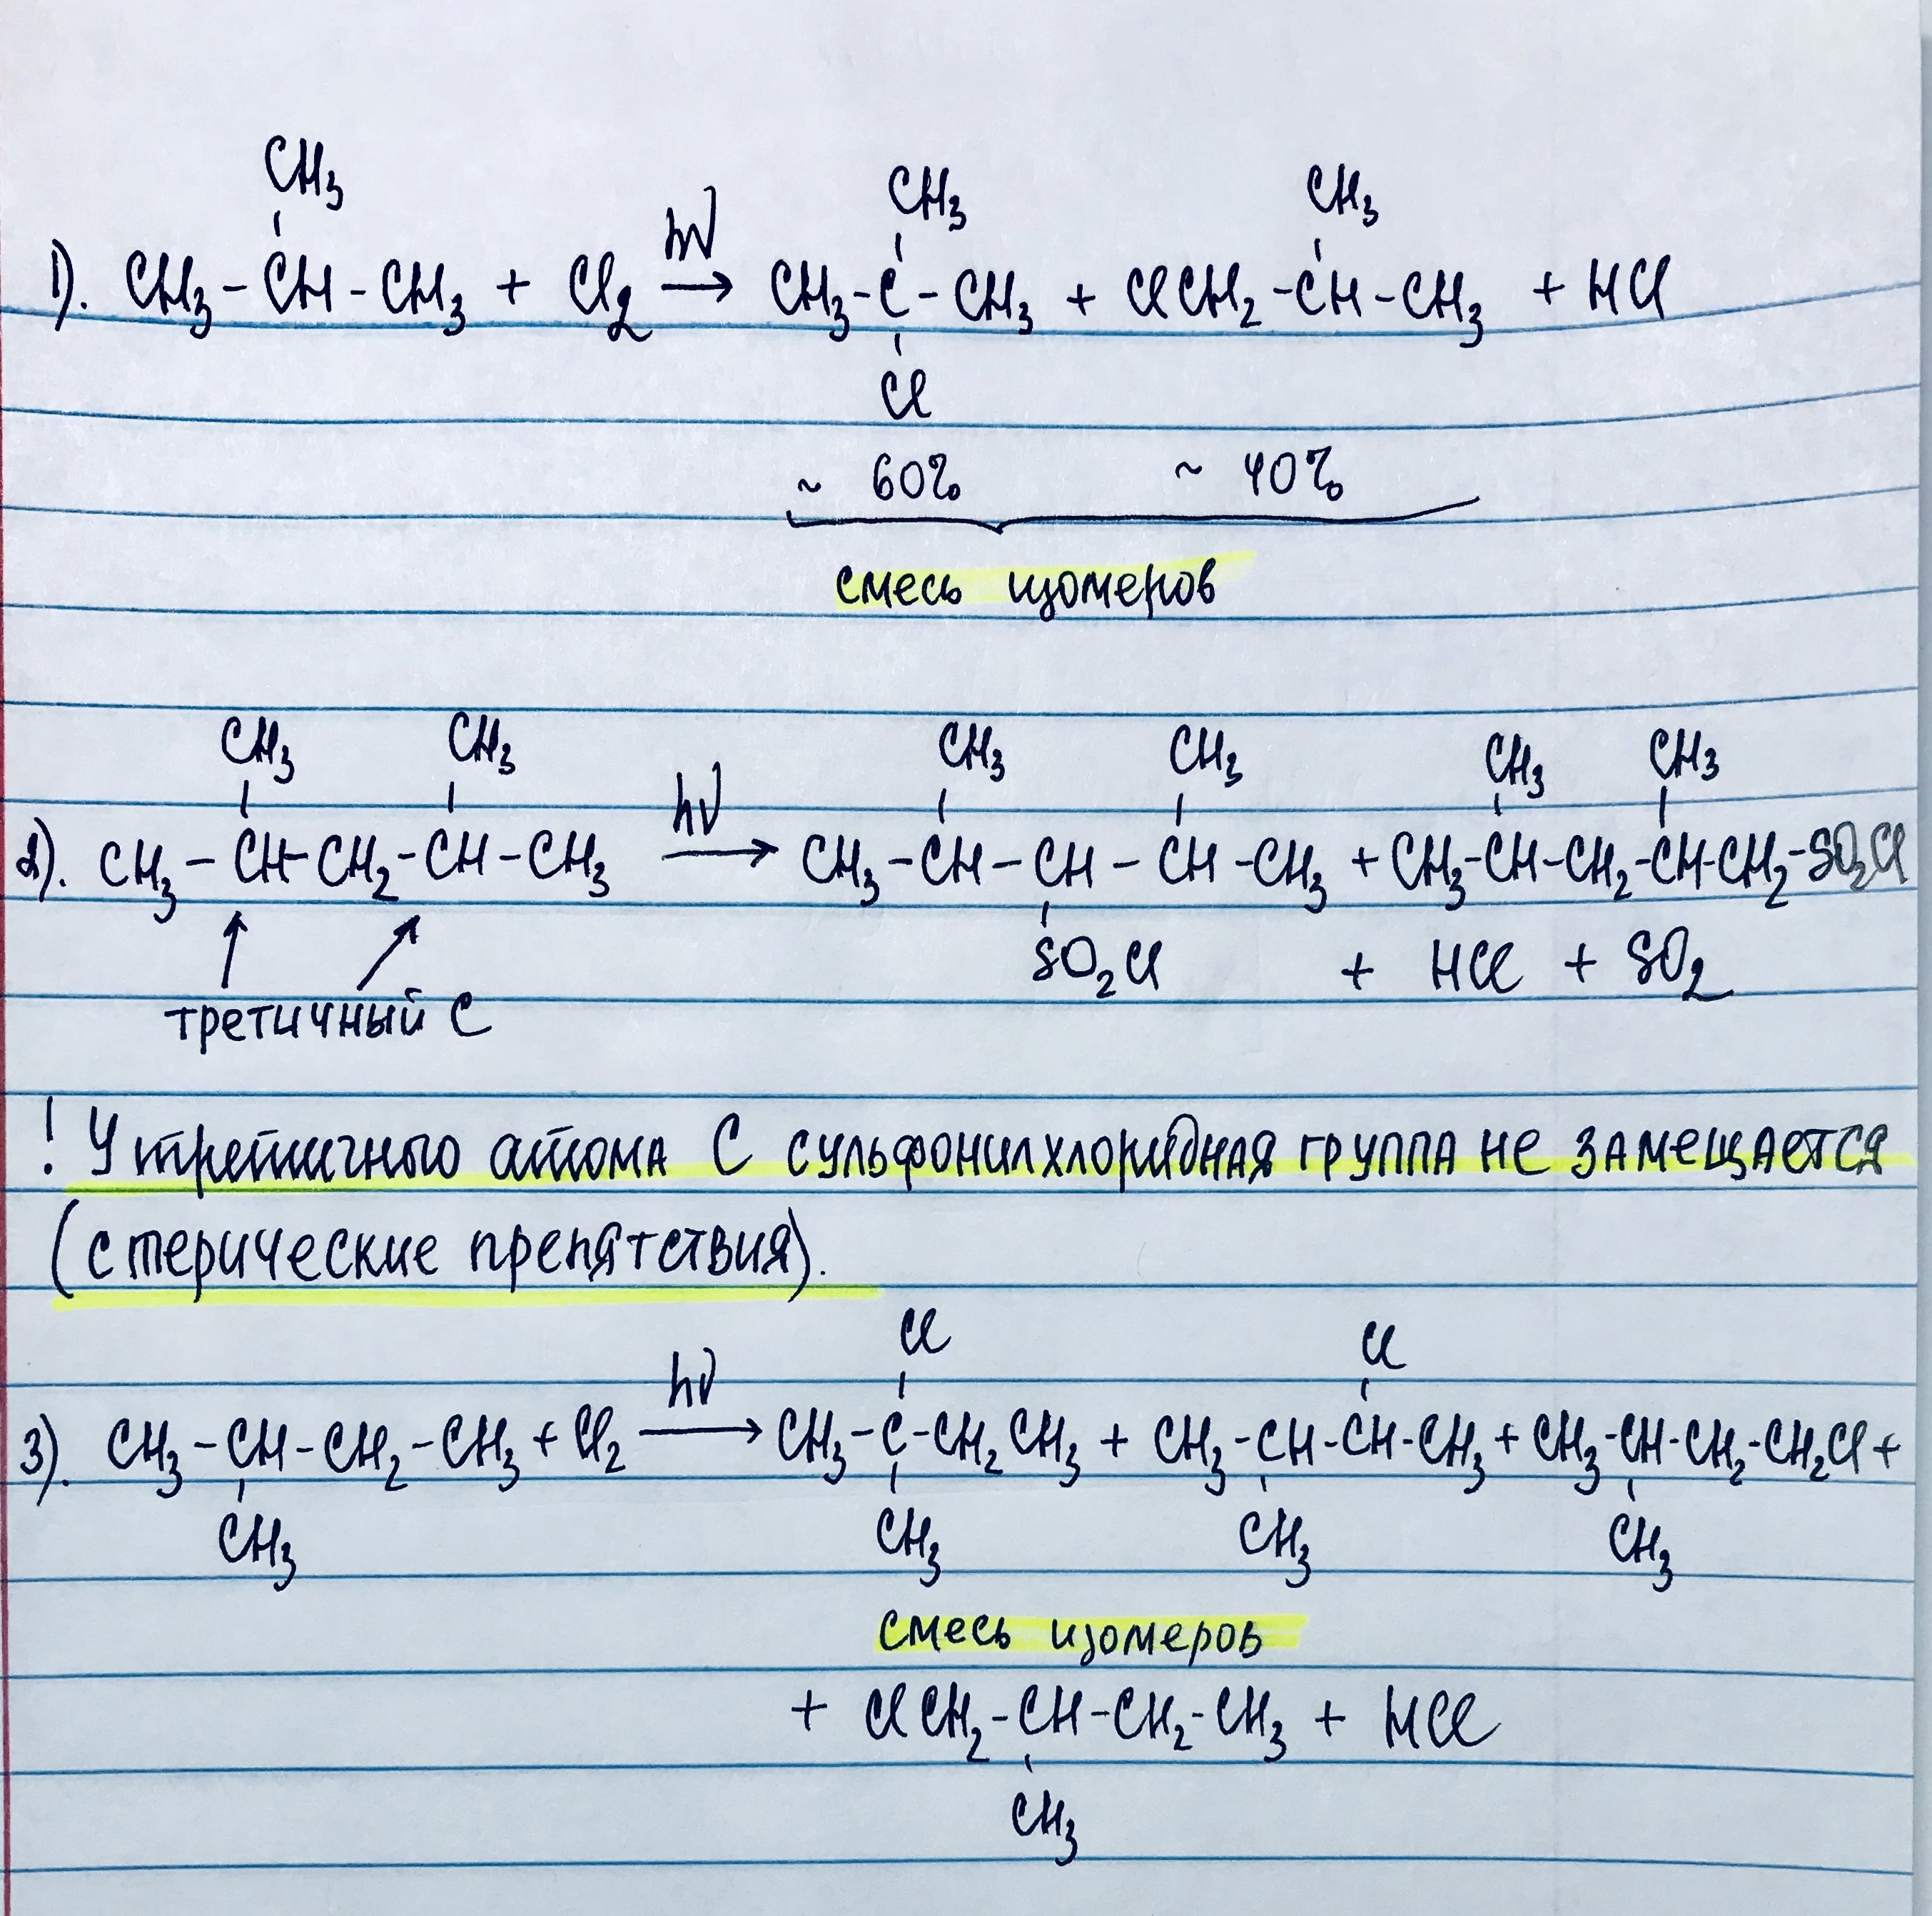 CH₃ CH₃ CH₃
1). CH₃-CH-CH₃ + Cl₂ hν → CH₃-C-CH₃ + ClCH₂-CH-CH₃ + HCl
Cl
~ 60% ~ 40%
смесь изомеров
CH₃ CH₃ CH₃ CH₃ CH₃ CH₃
2). CH₃-CH-CH₂-CH-CH₃ hν → CH₃-CH-CH-CH-CH₃ + CH₃-CH-CH₂-CH-CH₂-SO₂Cl
SO₂Cl + HCl + SO₂
третичный C
! У третичного атома C сульфонилхлоридная группа не замещается
(стерические препятствия).
Cl Cl
3). CH₃-CH-CH₂-CH₃ + Cl₂ hν → CH₃-C-CH₂CH₃ + CH₃-CH-CH-CH₃ + CH₃-CH-CH₂-CH₂Cl +
CH₃ CH₃ CH₃ CH₃
смесь изомеров
+ ClCH₂-CH-CH₂-CH₃ + HCl
CH₃